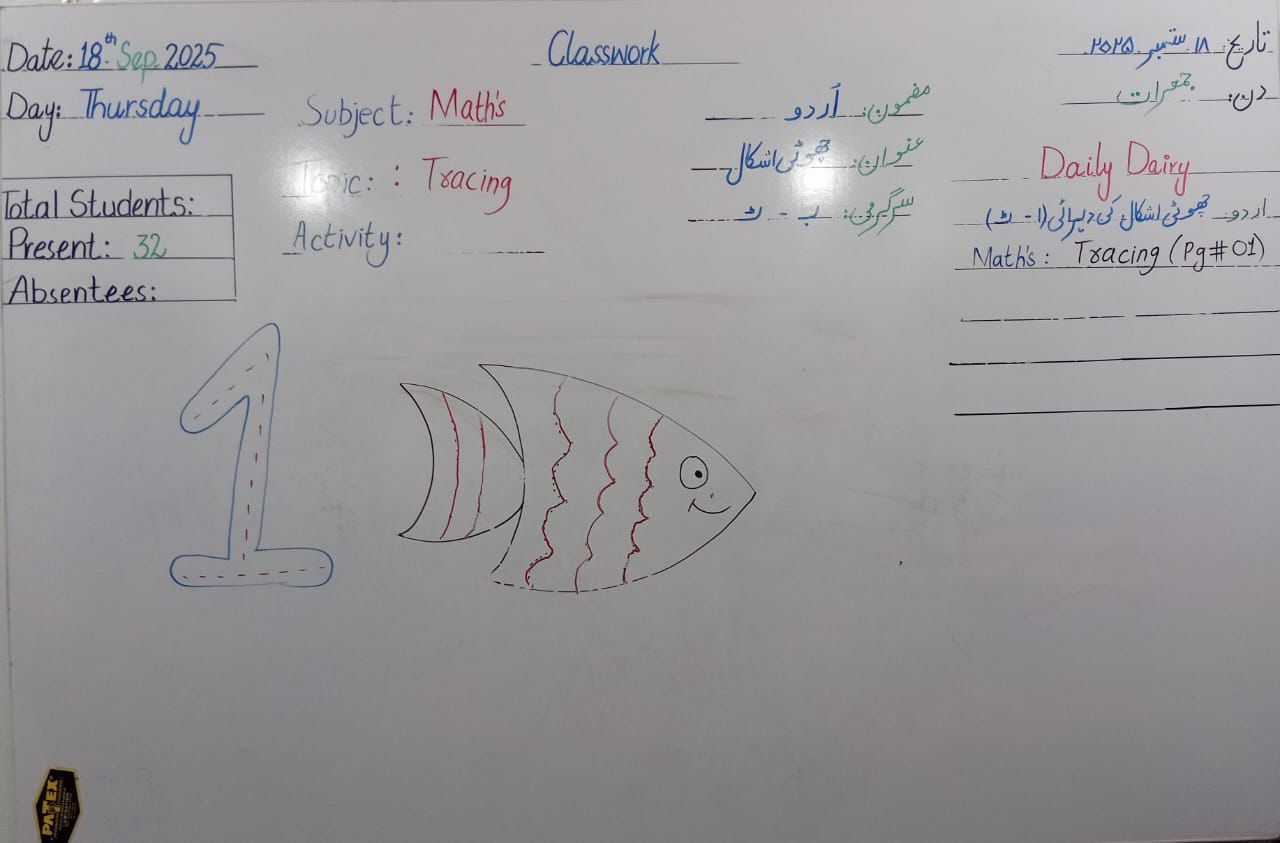 Date: 18th Sep. 2025
Day: Thursday
Total Students:
Present: 32
Absentees:
Classwork
Subject: Math's
Topic: : Tracing
Activity:
مضمون: اُردو
عنوان: چھوٹی اشکال
سرگرمی: ب - ٹ
تاریخ: ۱۸ ستمبر ۲۰۲۵
دن: جمعرات
Daily Dairy
اردو: چھوٹی اشکال کی دہرائی (ا - ٹ)
Math's: Tracing (Pg# 01)
1
PATEX